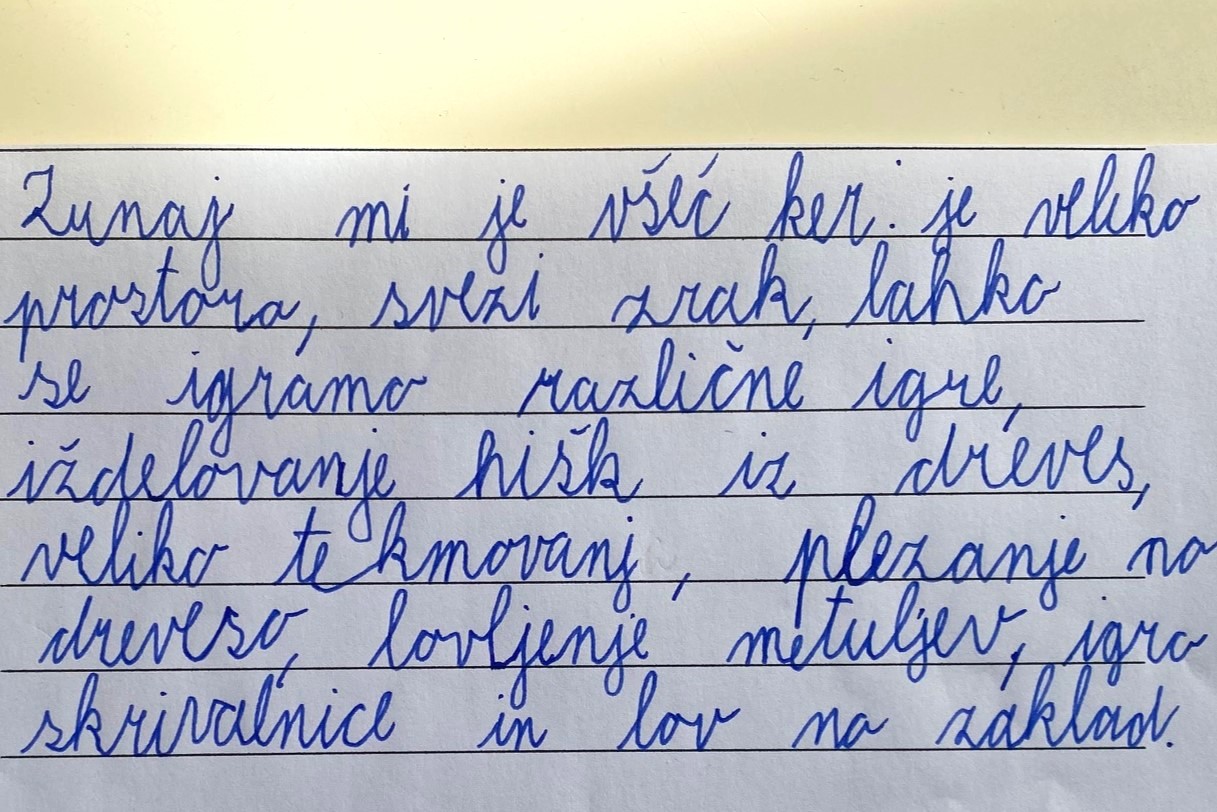 Zunaj mi je všeč ker je veliko
prostora, svezi zrak, lahko
se igramo različne igre,
iždelovanje hišk iz dreves,
veliko tekmovanj, plezanje na
drevesa, lovljenje metuljev, igra
skrivalnice in lov na zaklad.